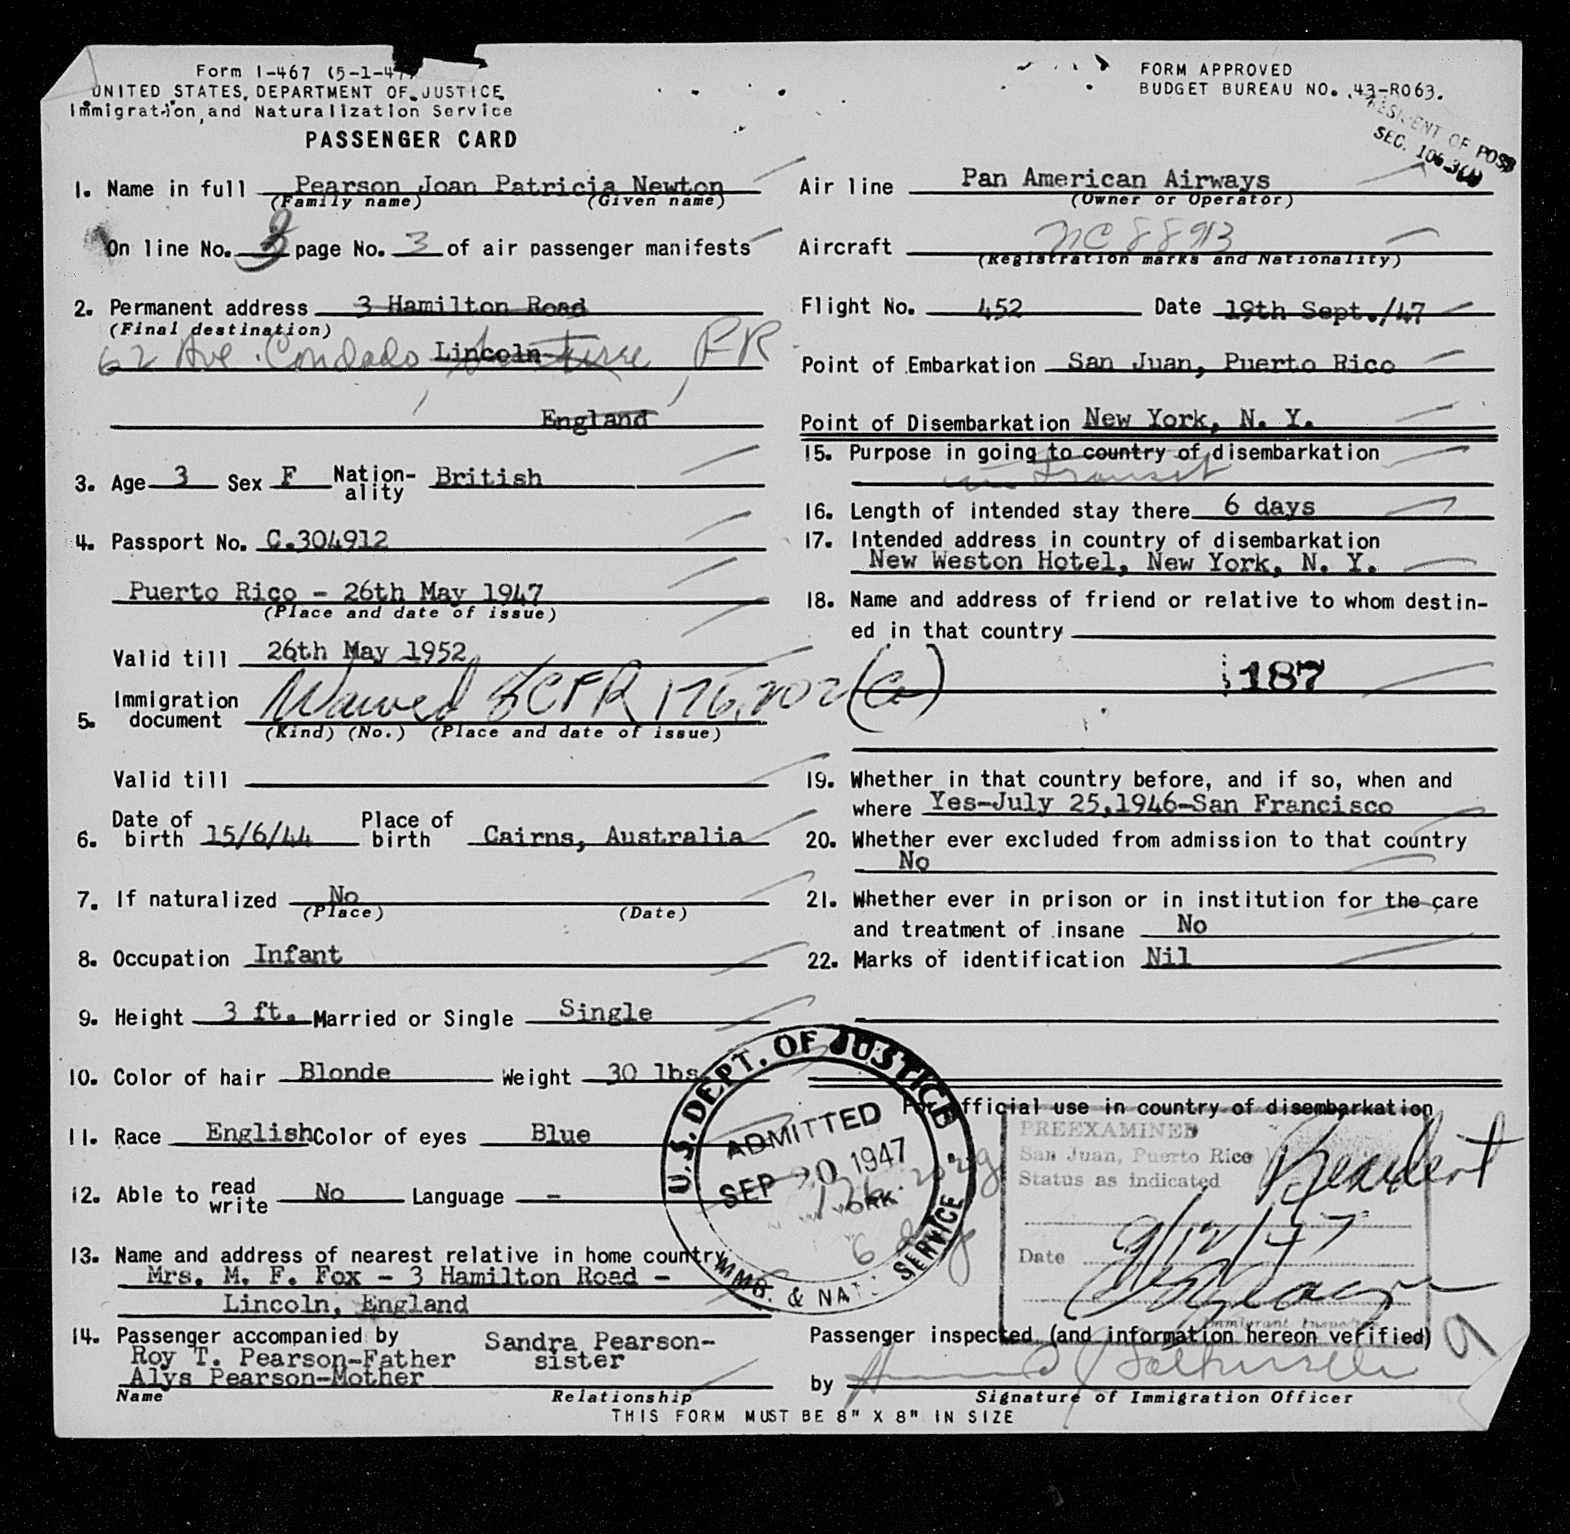 Form I-467 (5-1-47)
UNITED STATES, DEPARTMENT OF JUSTICE
Immigration and Naturalization Service
PASSENGER CARD
FORM APPROVED
BUDGET BUREAU NO. 43-R063.
SEC. 106.3(
1. Name in full Pearson Joan Patricia Newton
(Family name) (Given name)
On line No. 3 page No. 3 of air passenger manifests
2. Permanent address 3 Hamilton Road
(Final destination)
Lincoln
62 Ave. Condado Santurce, P.R.
England
3. Age 3 Sex F Nation-ality British
4. Passport No. C.304912
Puerto Rico - 26th May 1947
(Place and date of issue)
Valid till 26th May 1952
5. Immigration document Waived 8 CFR 176.202(a)
(Kind) (No.) (Place and date of issue)
Valid till
6. Date of birth 15/6/44 Place of birth Cairns, Australia
7. If naturalized No
(Place) (Date)
8. Occupation Infant
9. Height 3 ft. Married or Single Single
10. Color of hair Blonde Weight 30 lbs
11. Race English Color of eyes Blue
12. Able to read write No Language -
13. Name and address of nearest relative in home country
Mrs. M. F. Fox - 3 Hamilton Road -
Lincoln, England
14. Passenger accompanied by Sandra Pearson-
Roy T. Pearson-Father sister
Alys Pearson-Mother
Name Relationship
Air line Pan American Airways
(Owner or Operator)
Aircraft NC 88913
(Registration marks and Nationality)
Flight No. 452 Date 19th Sept./47
Point of Embarkation San Juan, Puerto Rico
Point of Disembarkation New York, N. Y.
15. Purpose in going to country of disembarkation
in transit
16. Length of intended stay there 6 days
17. Intended address in country of disembarkation
New Weston Hotel, New York, N. Y.
18. Name and address of friend or relative to whom destin-
ed in that country
187
19. Whether in that country before, and if so, when and
where Yes-July 25,1946-San Francisco
20. Whether ever excluded from admission to that country
No
21. Whether ever in prison or in institution for the care
and treatment of insane No
22. Marks of identification Nil
For official use in country of disembarkation
U.S. DEPT. OF JUSTICE
ADMITTED
SEP 20 1947
NEW YORK
IMMG. & NAT. SERVICE
PREEXAMINED
San Juan, Puerto Rico
Status as indicated
Resident
Date 9/12/47
Immigrant Inspector
Passenger inspected (and information hereon verified)
by
Signature of Immigration Officer
THIS FORM MUST BE 8" X 8" IN SIZE